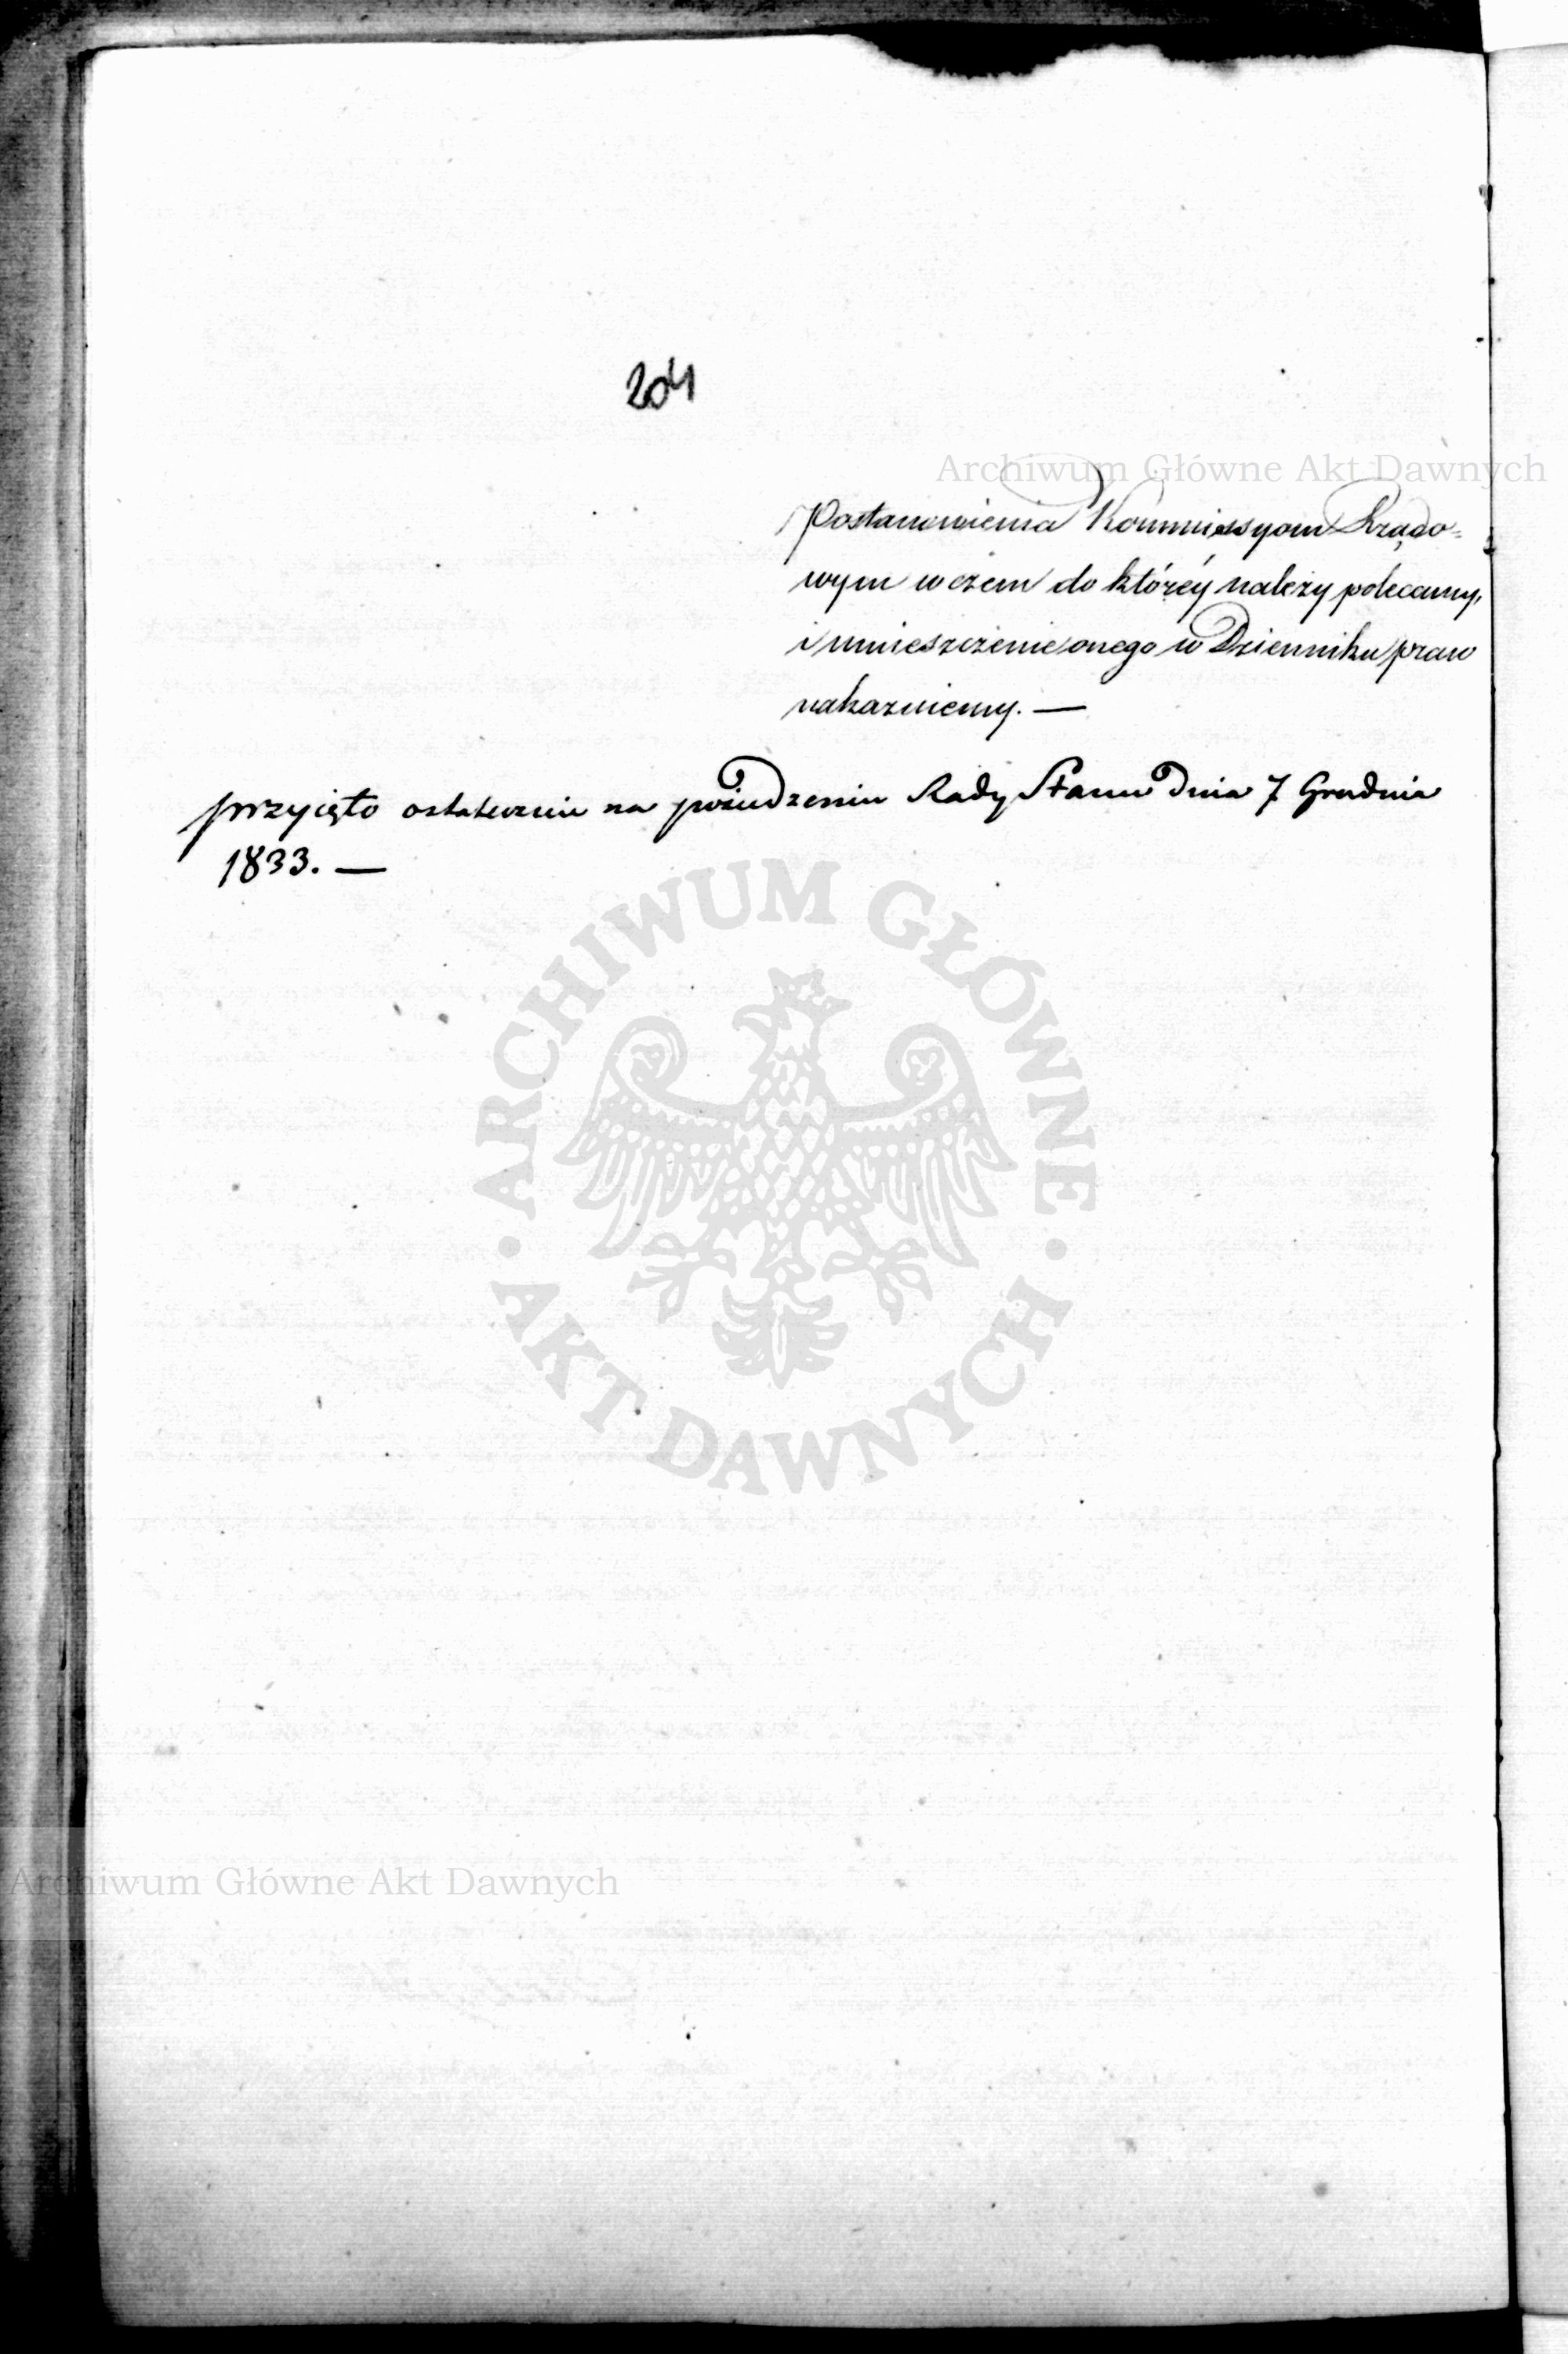 204
Archiwum Główne Akt Dawnych
Postanowienia Kommissyom Rządo=
wym w czem do któréy należy polecamy,
i umieszczenie onego w Dzienniku praw
nakazuiemy. —
przyięto ostatecznie na posiedzeniu Rady Stanu dnia 7 Grudnia
1833. —
ARCHIWUM GŁÓWNE
AKT DAWNYCH
Archiwum Główne Akt Dawnych